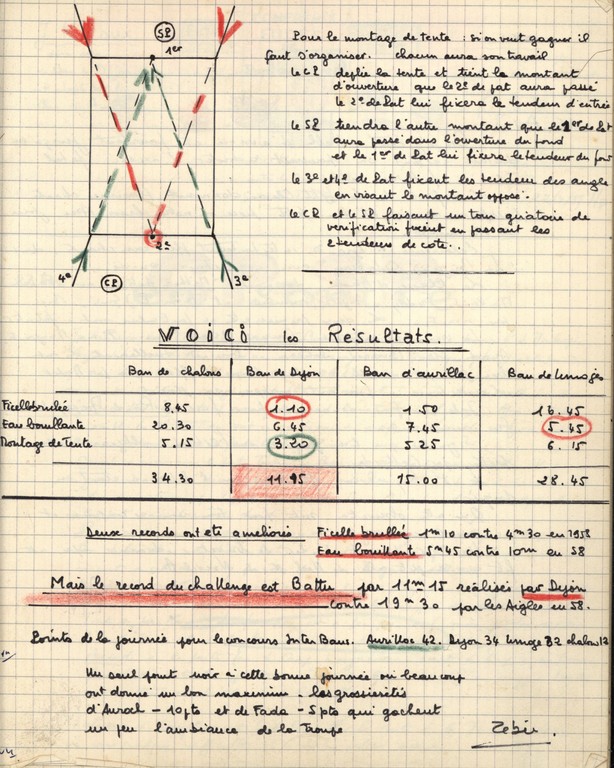 SP
1er
2e
4e
CP
3e
Pour le montage de tente : si on veut gagner il
faut s'organiser. chacun aura son travail
le CP deplie la tente et tient le montant
d'ouverture que le 2e de pat aura passé
le 2e de Pat lui fixera le tendeur d'entrée
le SP tiendra l'autre montant que le 1er de Pat
aura passé dans l'ouverture du fond
et le 1er de Pat lui fixera le tendeur du fon
le 3e et 4e de Pat fixent les tendeur des angles
en visant le montant opposé.
le CP et le SP faisant un tour de
verification fixent en passant les
2 tendeurs de coté..
VOICI les Résultats.
Ban de chalons Ban de Dijon Ban d'aurillac Ban de Limoges
Ficelle brulée 8.45 1.10 1.50 16.45
Eau bouillante 20.30 6.45 7.45 5.45
Montage de Tente 5.15 3.20 5 25 6.15
34.30 11.15 15.00 28.45
Deux records ont eté ameliorés Ficelle brullée 1m10 contre 4m30 en 1958
Eau bouillante 5m45 contre 10m en 58
Mais le record du challenge est Battu par 11m15 réalisés par Dijon
contre 19m30 par les Aigles en 58.
Points de la journée pour le concours Inter Bans. Aurillac 42. Dijon 34 limoge 32 chalon 12
Un seul point noir à cette bonne journée ou beaucoup
ont donné un bon maximum - les grossieretés
d'Auroch - 10pts et de Fada - 5 pts qui gachent
un peu l'ambiance de la Troupe
Zebu.